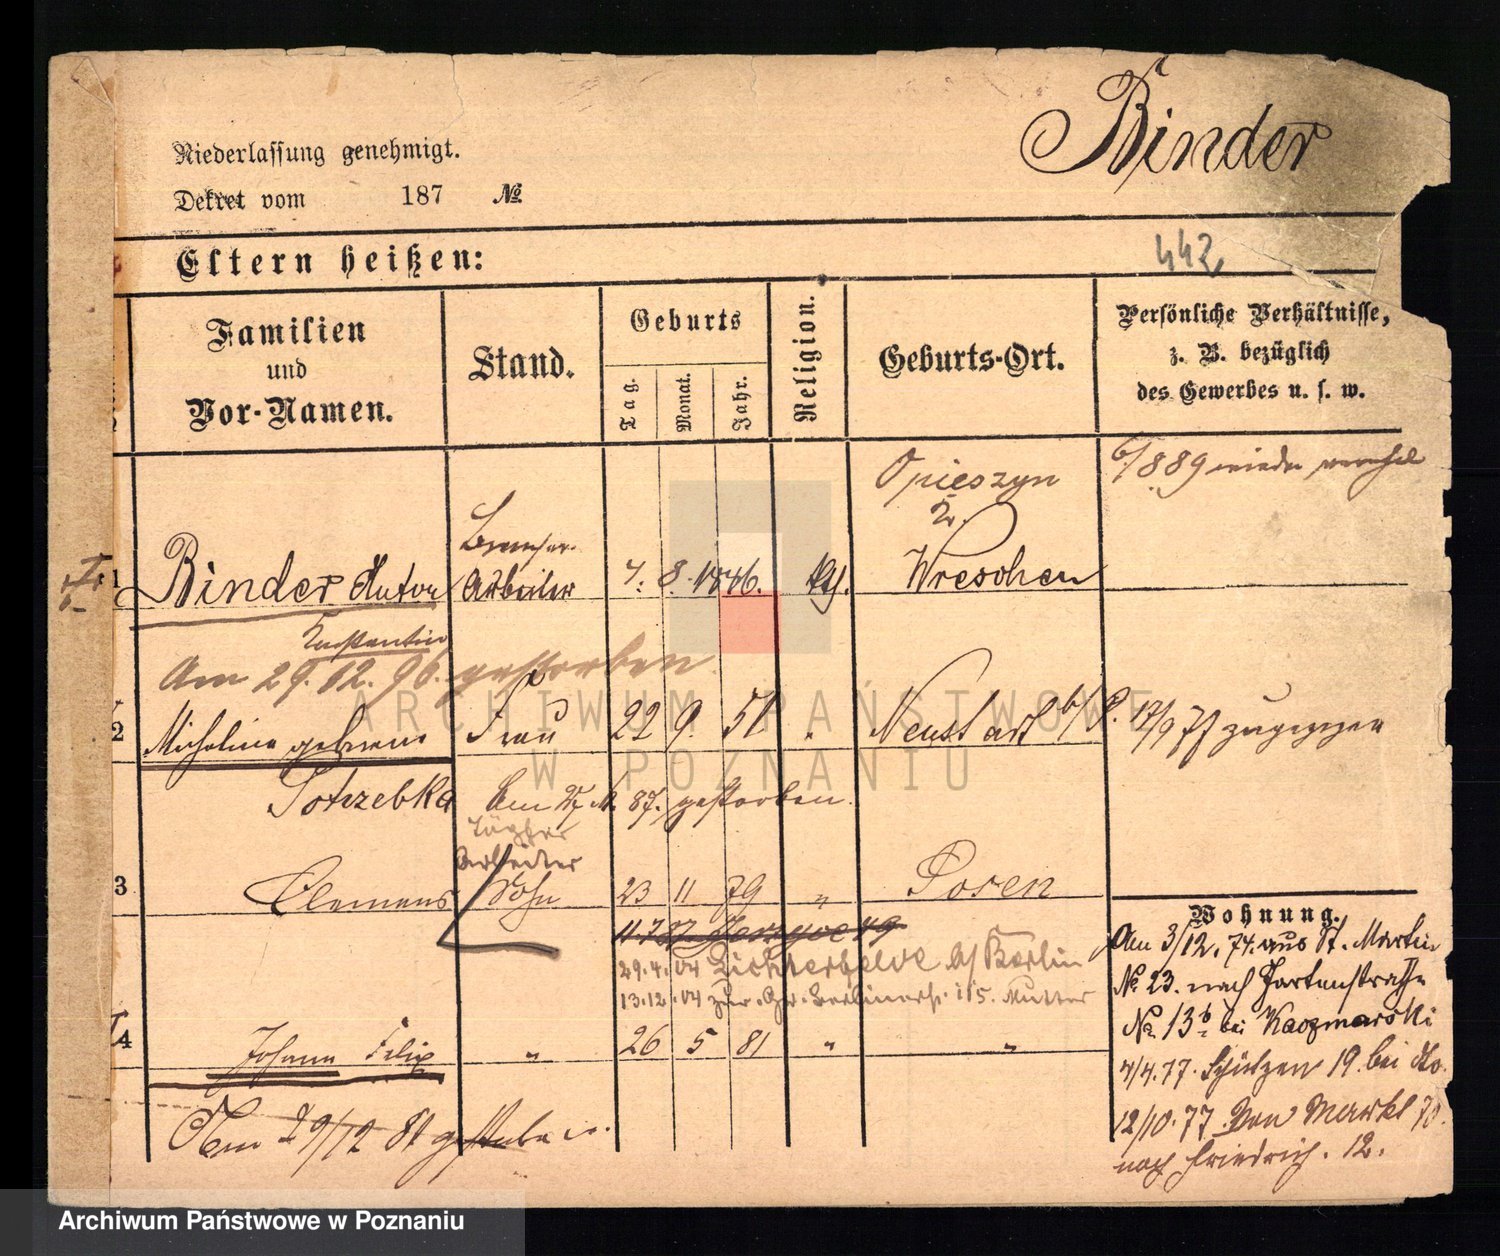 Binder
Niederlassung genehmigt.
Dekret vom 187 №
442
Eltern heißen:
Familien und Vor-Namen.
Stand.
Geburts
Tag.
Monat.
Jahr.
Religion.
Geburts-Ort.
Persönliche Verhältnisse,
z. B. bezüglich
des Gewerbes u. s. w.
Opieszyn
Kr.
6/8 89 wieder
1 Binder Anton Arbeiter 7. 8. 1846. kth. Wreschen
Konstantin
Am 29. 12. 96. gestorben
2 Micheline geborene Frau 22 9. 51 " Neustadt b/P. 17/9 77 zugezogen
Potrzebka Am 27. 87. gestorben.
Arbeiter
3 Clemens Sohn 23 11 79 " Posen
11 7 87 Jerzyce 49
29.4.04 Lichterfelde b/Berlin
13.12.04 zur. Gr. Berlinerstr. 115. Mutter
4 Johann Felix " 26 5 81 " "
Am 29/12 81 gestorben.
Wohnung.
Am 3/12. 74. aus St. Martin
No 23. nach Gartenstraße
No 13b bei Kaczmarski
4/4. 77. Schützen 19. bei
12/10. 77. Von Markt 70.
nach Friedrich. 12.
ARCHIWUM PAŃSTWOWE
W POZNANIU
Archiwum Państwowe w Poznaniu